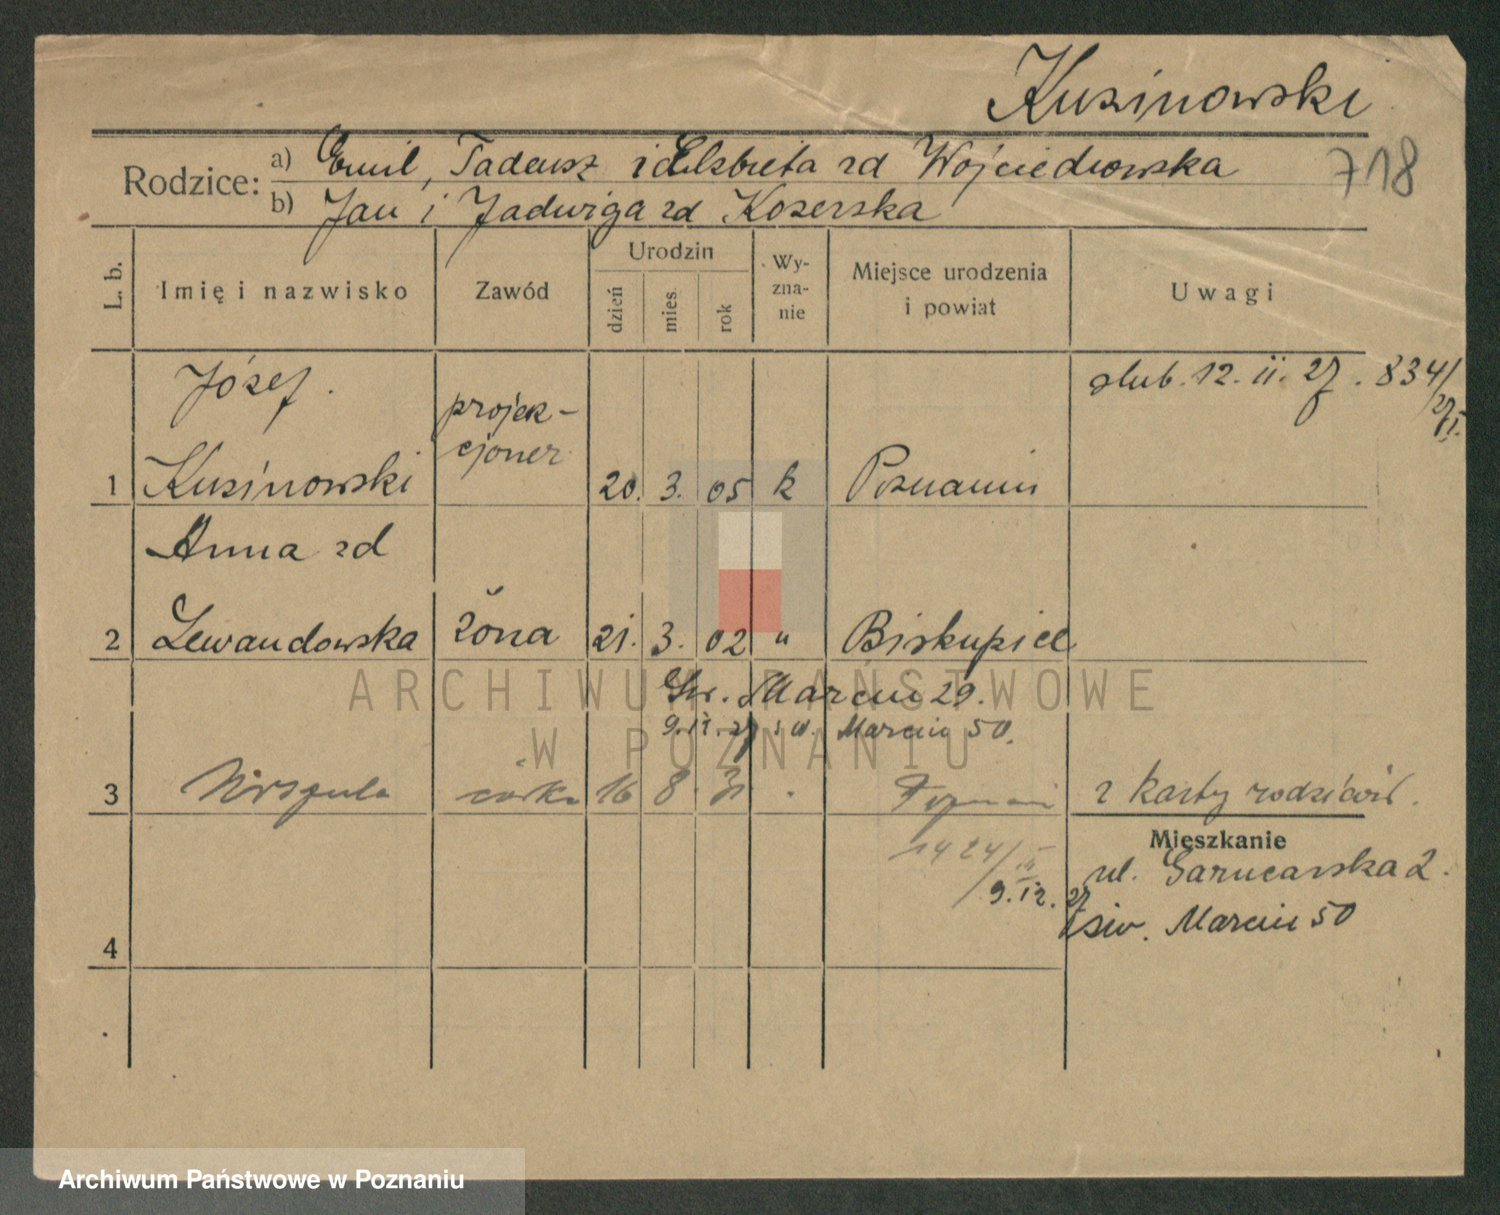 Kusinowski
718
Rodzice: a) Emil, Tadeusz i Elżbieta zd Wojciechowska
b) Jan i Jadwiga zd Kozerska
L. b.
Imię i nazwisko
Zawód
Urodzin
dzień
mies.
rok
Wy-
zna-
nie
Miejsce urodzenia
i powiat
Uwagi
ślub. 12. II. 27. 834/
Józef.
projek-
cjoner
1 Kusinowski 20. 3. 05 k Poznaniu
Anna zd
2 Lewandowska żona 21. 3. 02 " Biskupice
Św. Marcin 29.
Marcin 50.
3 córka 16 8. z karty rodziców.
Mieszkanie
ul. Garncarska 2.
1424/
9. 12. 27
św. Marcin 50
4
ARCHIWUM PAŃSTWOWE
W POZNANIU
Archiwum Państwowe w Poznaniu